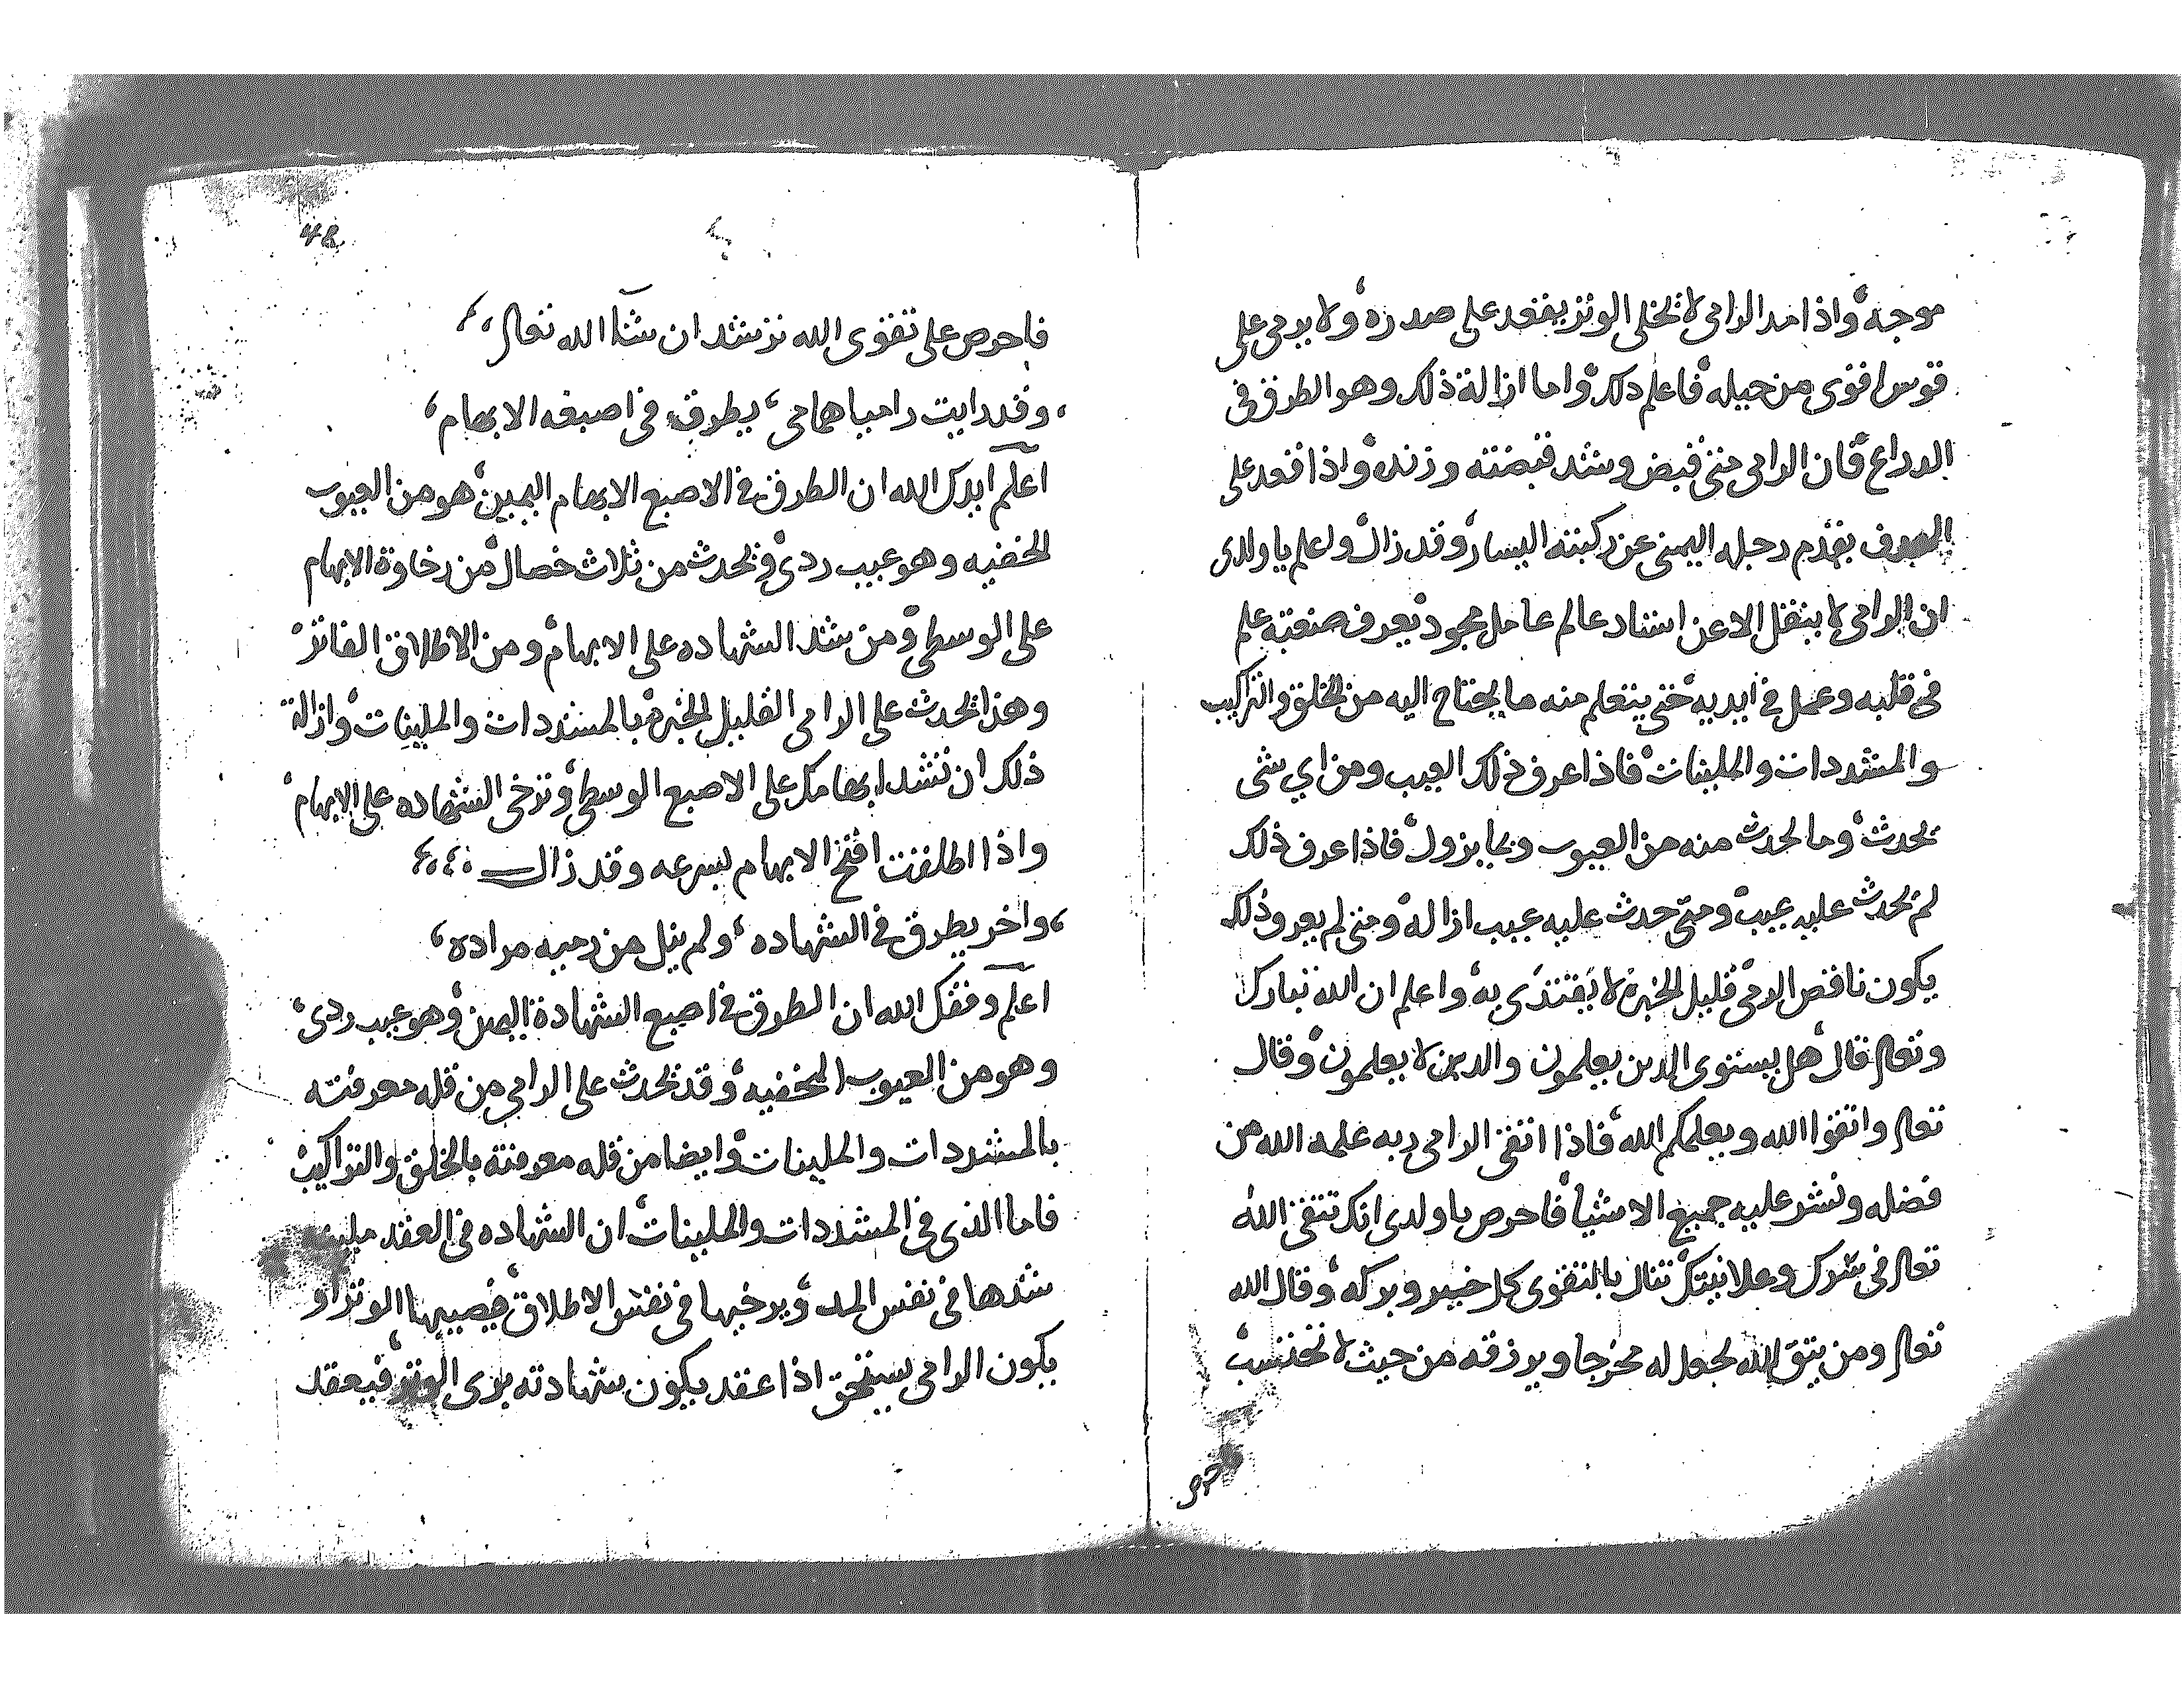 موجه واذا مد الرامي لا تخلي الوتر يقعد على صدره ولا يرمي على
قوس اقوى من حيله فاعلم ذلك واما ازالة ذلك وهو الطرق في
الدراع فان الرامي متى قبض وشد قبضته وزنده واذا قعد على
يقدم رجله اليمنى عن ركبته اليسار وقد زال واعلم يا ولدي
ان الرامي لا ينقل الا عن استاد عالم عامل مجود يعرف صنعته علم
في قلبه وعمل في ايديه حتى يتعلم منه ما يحتاج اليه من الخلق والتراكيب
والمشددات والملينات فاذا عرف ذلك العيب ومن اي شي
يحدث وما يحدث منه من العيوب وبما يزول فاذا عرف ذلك
لم يحدث عليه عيب ومتى حدث عليه عيب ازاله ومتى لم يعرف ذلك
يكون ناقص الرمي قليل الخبرة لا يقتدى به واعلم ان الله تبارك
وتعالى قال هل يستوى الدين يعلمون والدين لا يعلمون وقال
تعالى واتقوا الله ويعلمكم الله فاذا اتقى الرامي ربه علمه الله من
فضله ونشر عليه جميع الاشيا فاحرص يا ولدي انك تتقي الله
تعالى في سرك وعلانيتك تنال بالتقوى كل خير وبركه وقال الله
تعالى ومن يتق الله يجعل له مخرجا ويرزقه من حيث لا تحتسب
فاحرص
48
فاحرص على تقوى الله ترشد ان شآ الله تعالى
وقد رايت راميا همامي يطرق في اصبعه الابهام
اعلم ايدك الله ان الطرق في الاصبع الابهام اليمين هو من العيوب
الخفيه وهو عيب ردي ويحدث من ثلاث خصال من رخاوة الابهام
على الوسطى ومن شد الشهاده على الابهام ومن الاطلاق الفاتر
وهذا يحدث على الرامي القليل الخبرة بالمشددات والملينات وازالة
ذلك ان تشد ابهامك على الاصبع الوسطى وترخي الشهاده على الابهام
واذا اطلقت افتح الابهام بسرعه وقد زال
واخر يطرق في الشهاده ولم ينل من رميه مراده
اعلم وفقك الله ان الطرق في اصبع الشهادة اليمين وهو عيب ردي
وهو من العيوب المخفيه وقد يحدث على الرامي من قله معرفته
بالمشددات والملينات وايضا من قله معرفته بالخلق والتراكيب
فاما الذي في المشددات والملينات ان الشهاده في العقد ملينه
شدها في نفس المد ويرخيها في نفس الاطلاق فيصيبها الوتر او
يكون الرامي يستحق اذا عقد يكون شهادته برى الوتر فيعقد